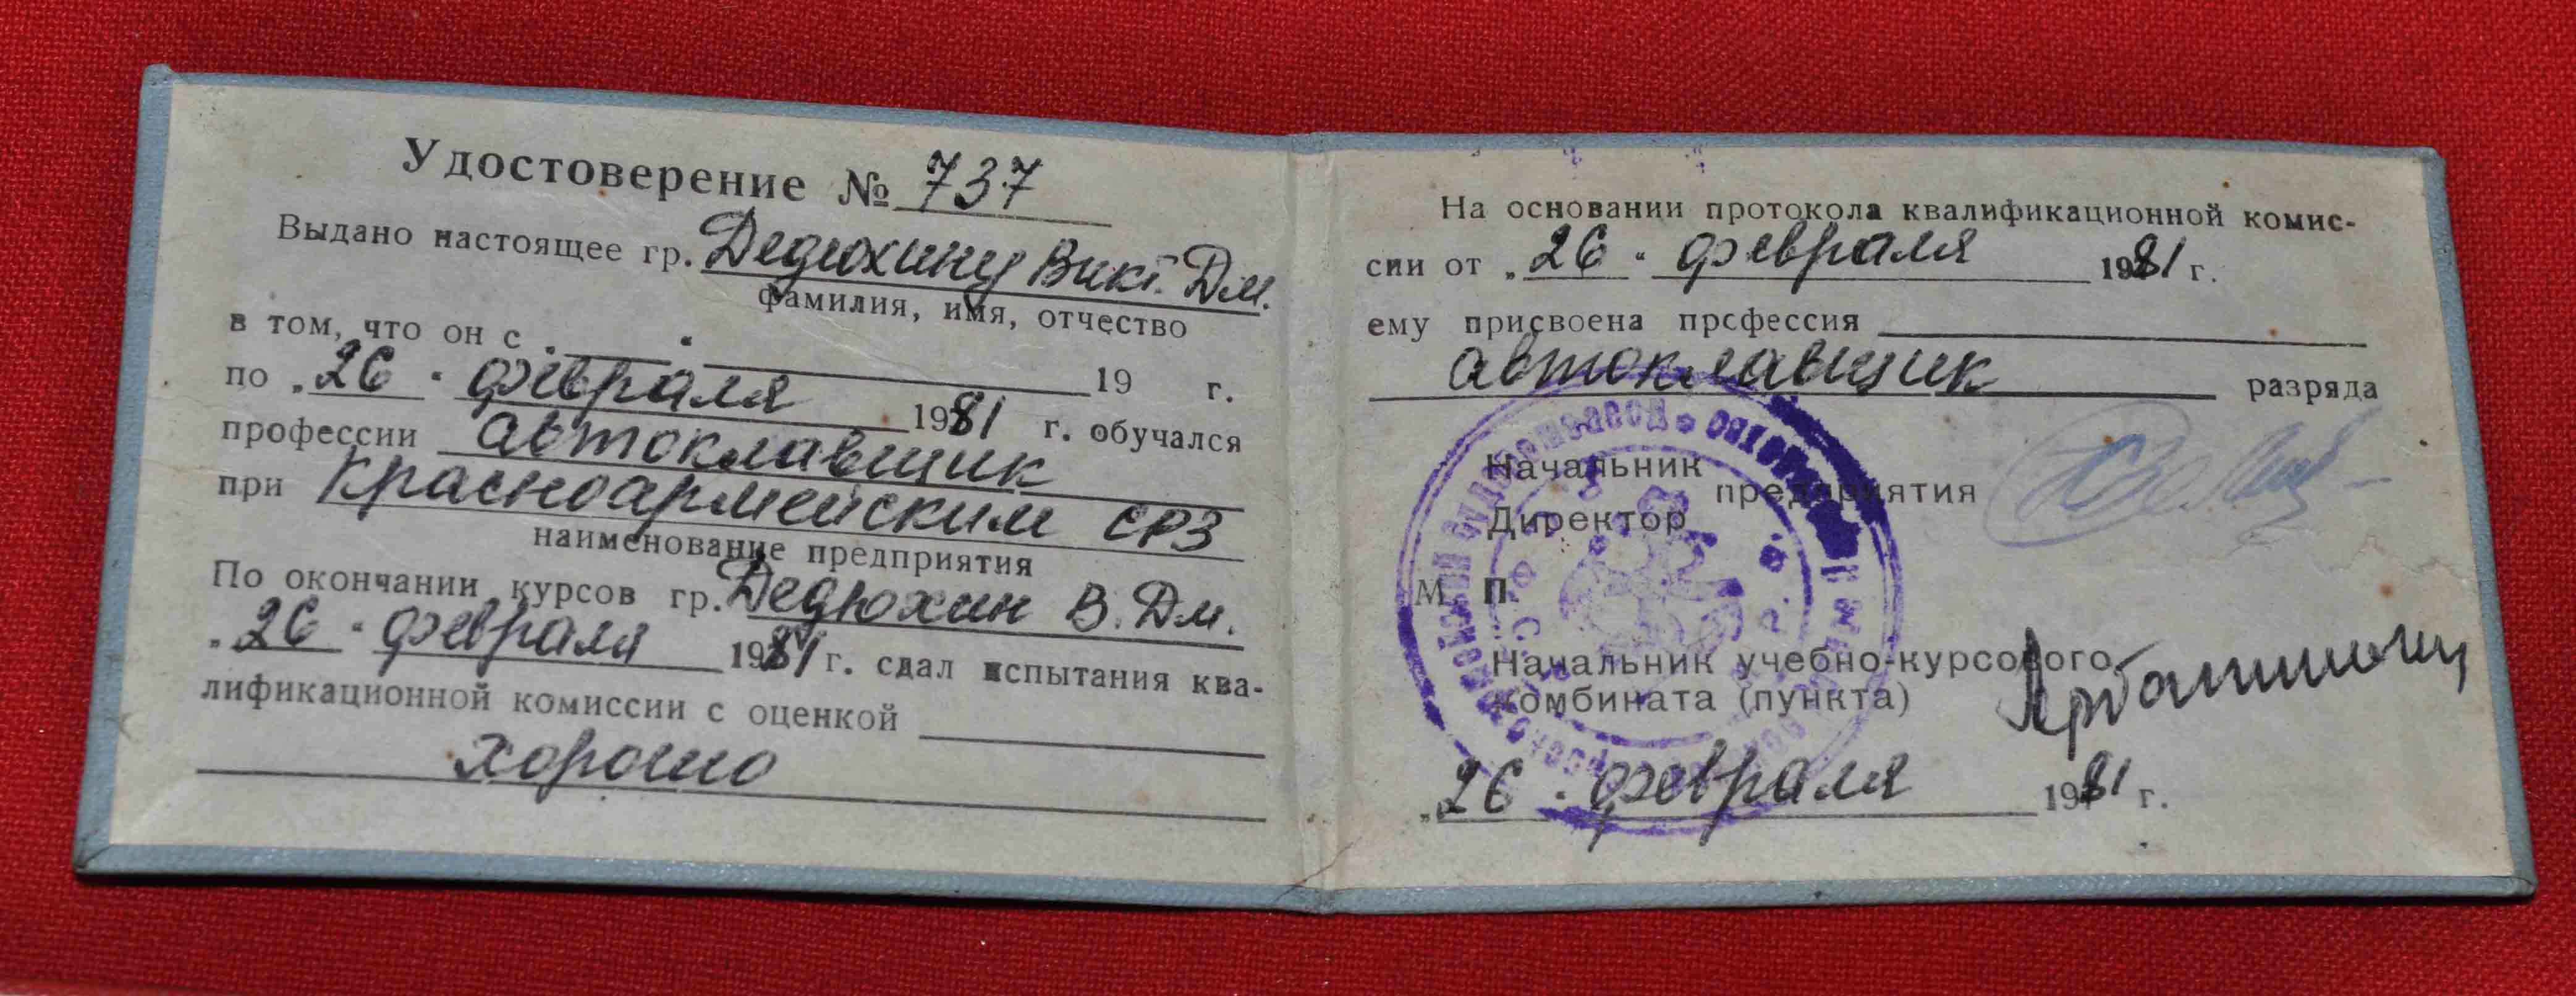 Удостоверение № 737
Выдано настоящее гр. Дедюхину Викт. Дм.
фамилия, имя, отчество
в том, что он с „ “ 19 г.
по „26“ февраля 1981 г. обучался
профессии автоклавщик
при Красноармейским СРЗ
наименование предприятия
По окончании курсов гр. Дедюхин В. Дм.
„26“ февраля 1981 г. сдал испытания ква-
лификационной комиссии с оценкой
хорошо
На основании протокола квалификационной комис-
сии от „26“ февраля 1981 г.
ему присвоена профессия
автоклавщик разряда
Начальник
предприятия
Директор
М. П.
Начальник учебно-курсового
комбината (пункта)
„26“ февраля 1981 г.